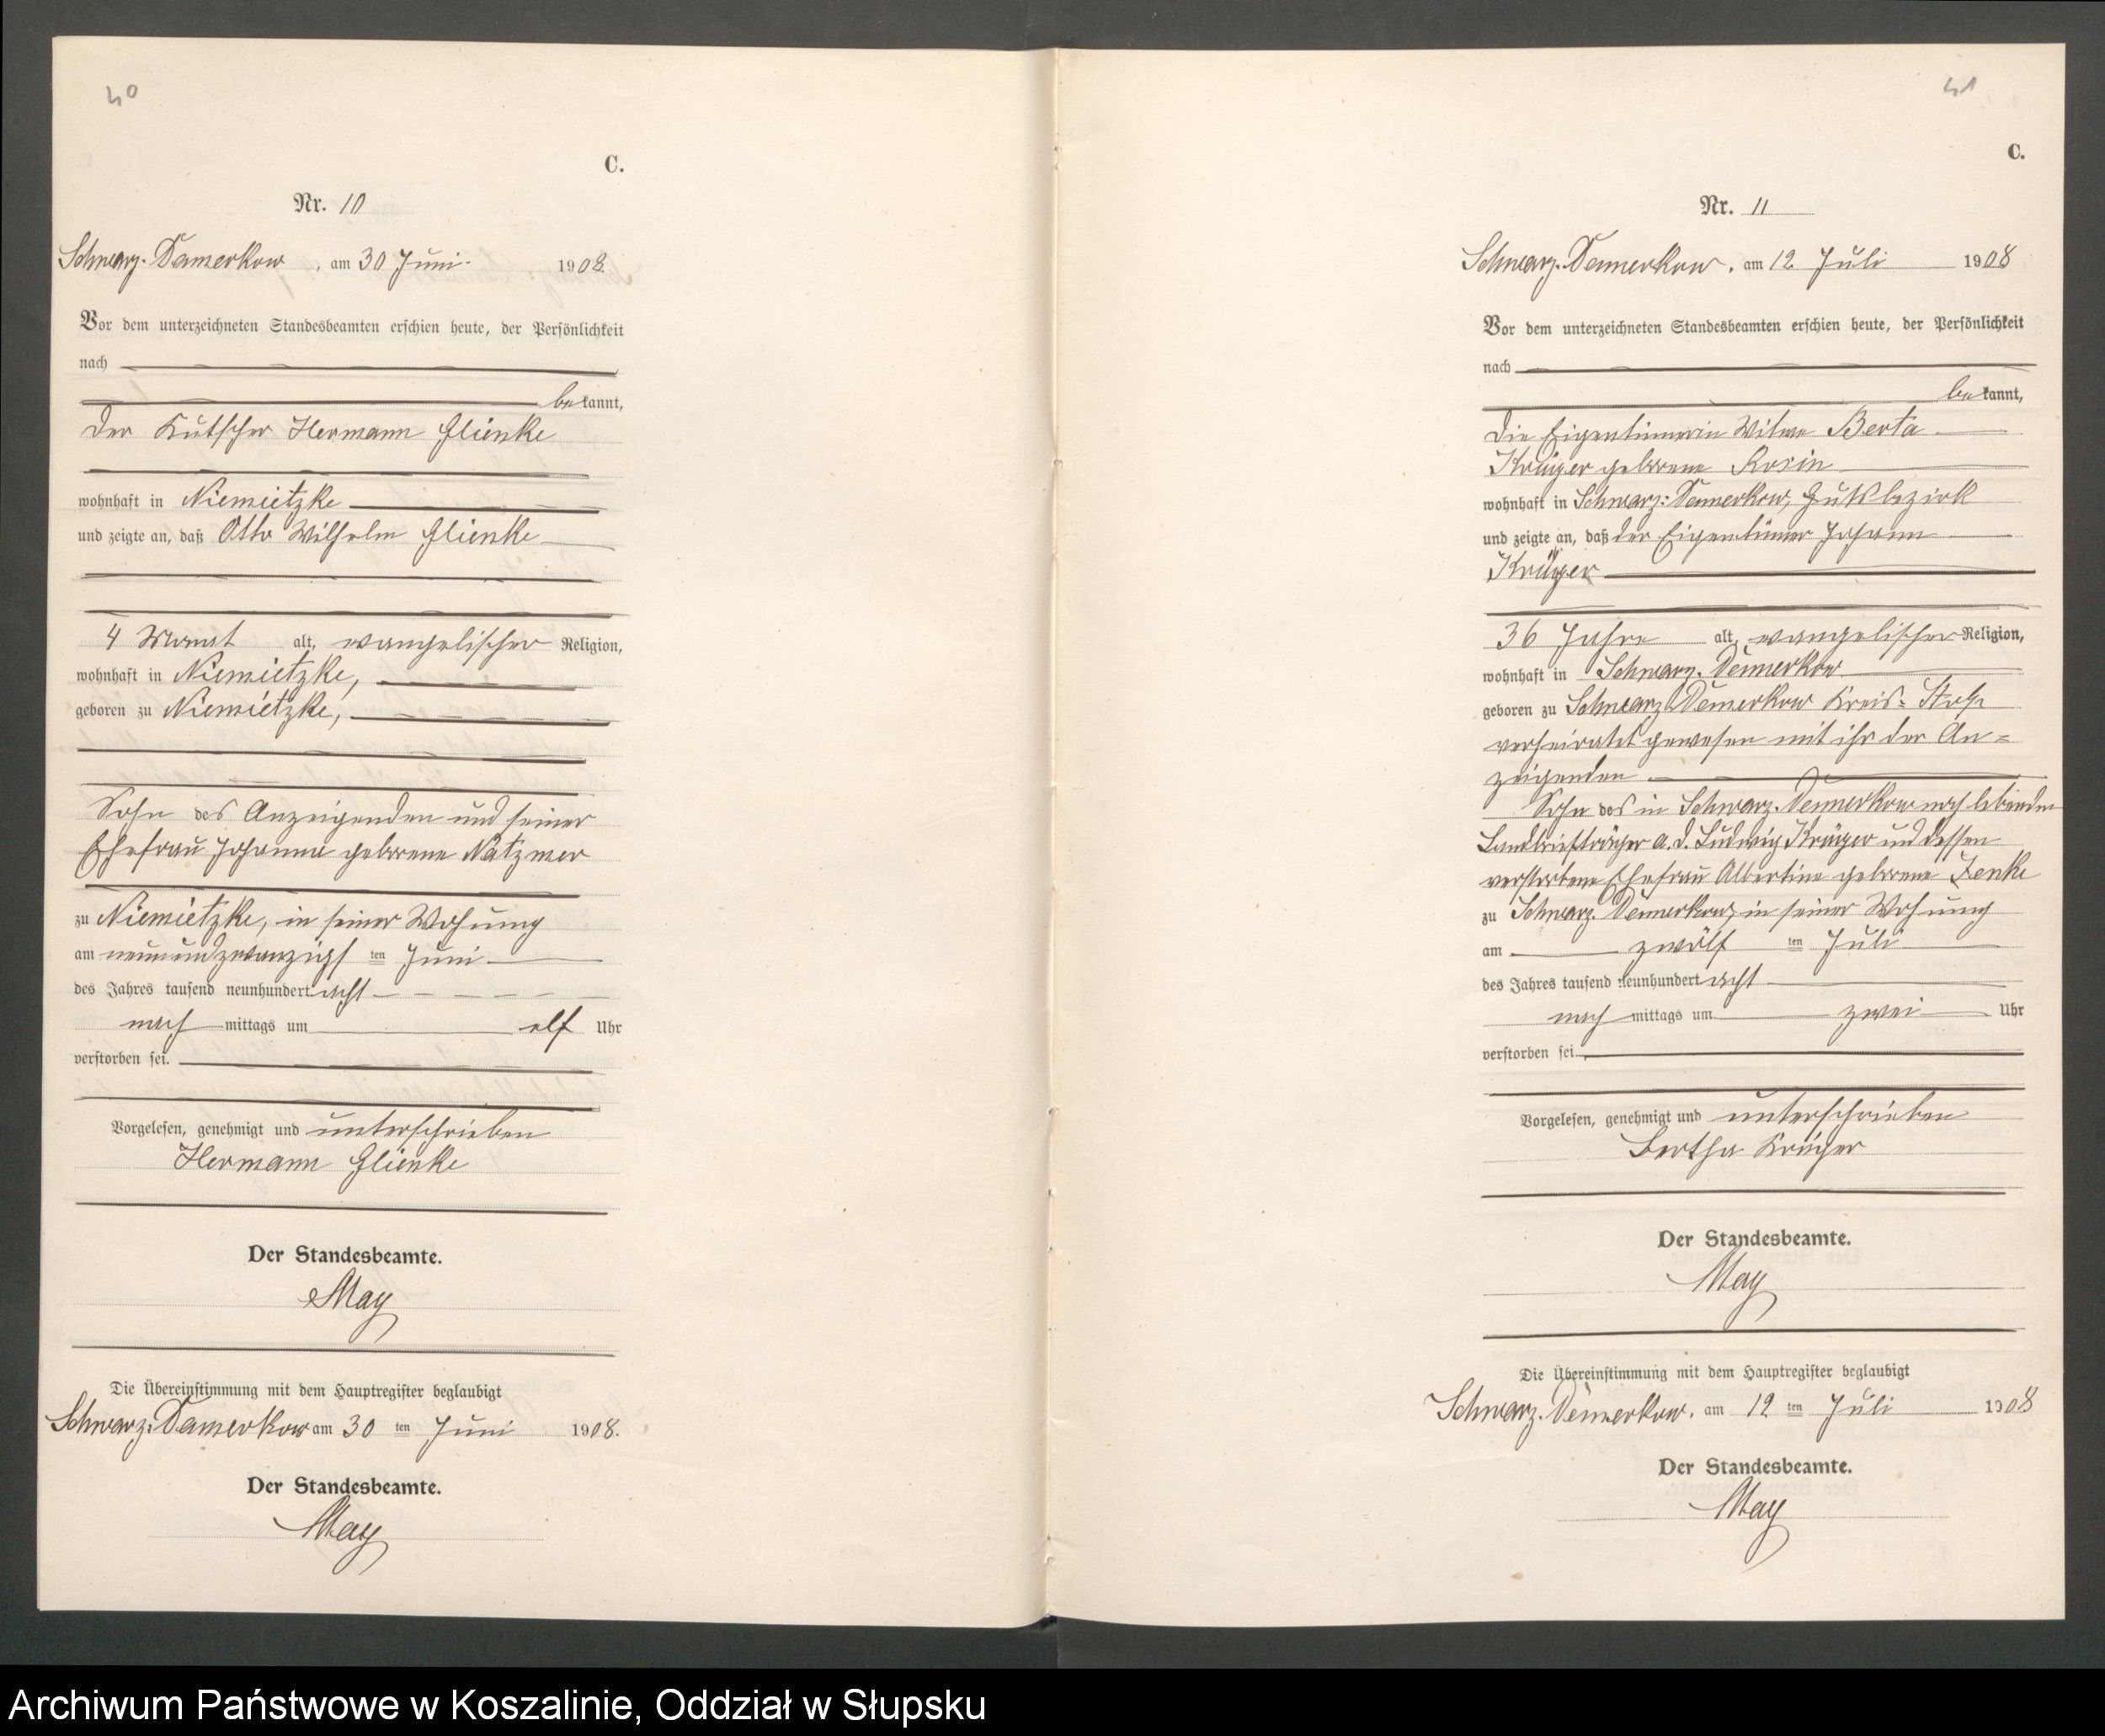 40
C.
Nr. 10
Schwarz-Damerkow, am 30 Juni 1908.
Vor dem unterzeichneten Standesbeamten erschien heute, der Persönlichkeit
nach
bekannt,
der Kutscher Hermann Glienke
wohnhaft in Niemietzke
und zeigte an, daß Otto Wilhelm Glienke
4 Monat alt, evangelischer Religion,
wohnhaft in Niemietzke,
geboren zu Niemietzke,
Sohn des Anzeigenden und seiner
Ehefrau Johanna geborene Natzmer
zu Niemietzke, in seiner Wohnung
am neunundzwanzigsten Juni
des Jahres tausend neunhundert acht
nach mittags um elf Uhr
verstorben sei.
Vorgelesen, genehmigt und unterschrieben
Hermann Glienke
Der Standesbeamte.
May
Die Übereinstimmung mit dem Hauptregister beglaubigt
Schwarz-Damerkow am 30 ten Juni 1908.
Der Standesbeamte.
May
41
C.
Nr. 11
Schwarz-Damerkow, am 12 Juli 1908
Vor dem unterzeichneten Standesbeamten erschien heute, der Persönlichkeit
nach
bekannt,
die Eigentümerin Witwe Berta
Krüger geborene Rosin
wohnhaft in Schwarz-Damerkow, Gutsbezirk
und zeigte an, daß der Eigentümer Johann
Krüger
36 Jahre alt, evangelischer Religion,
wohnhaft in Schwarz-Damerkow
geboren zu Schwarz-Damerkow Kreis-Stolp
verheiratet gewesen mit ihr der An=
zeigenden
Sohn des in Schwarz-Damerkow noch lebenden
Landbriefträger a. d. Ludwig Krüger und dessen
verstorbene Ehefrau Albertine geborene Zenke
zu Schwarz-Damerkow, in seiner Wohnung
am zwölf ten Juli
des Jahres tausend neunhundert acht
nach mittags um zwei Uhr
verstorben sei.
Vorgelesen, genehmigt und unterschrieben
Bertha Krüger
Der Standesbeamte.
May
Die Übereinstimmung mit dem Hauptregister beglaubigt
Schwarz-Damerkow, am 12 ten Juli 1908
Der Standesbeamte.
May
Archiwum Państwowe w Koszalinie, Oddział w Słupsku